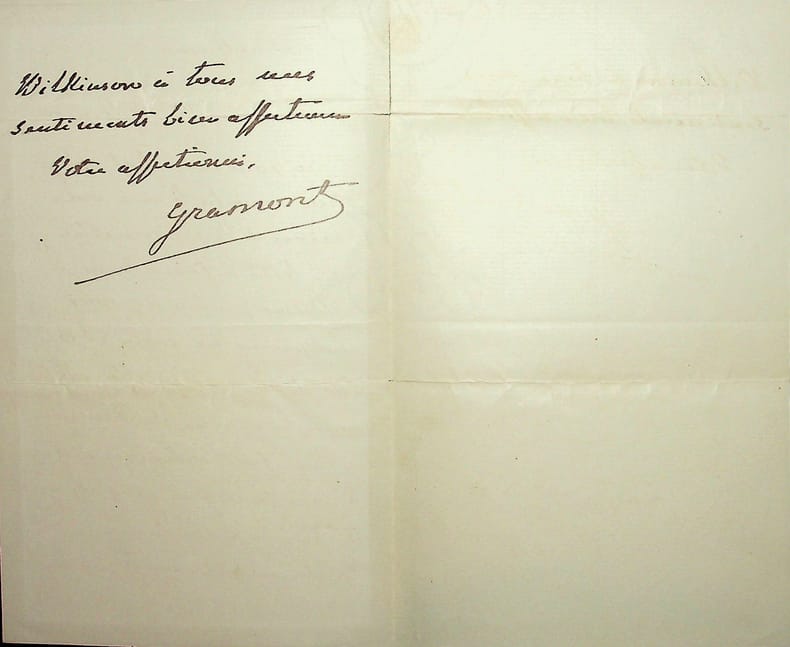 Wilkinson à tous mes
sentiments bien affectueux
Votre affectionné,
Gramont